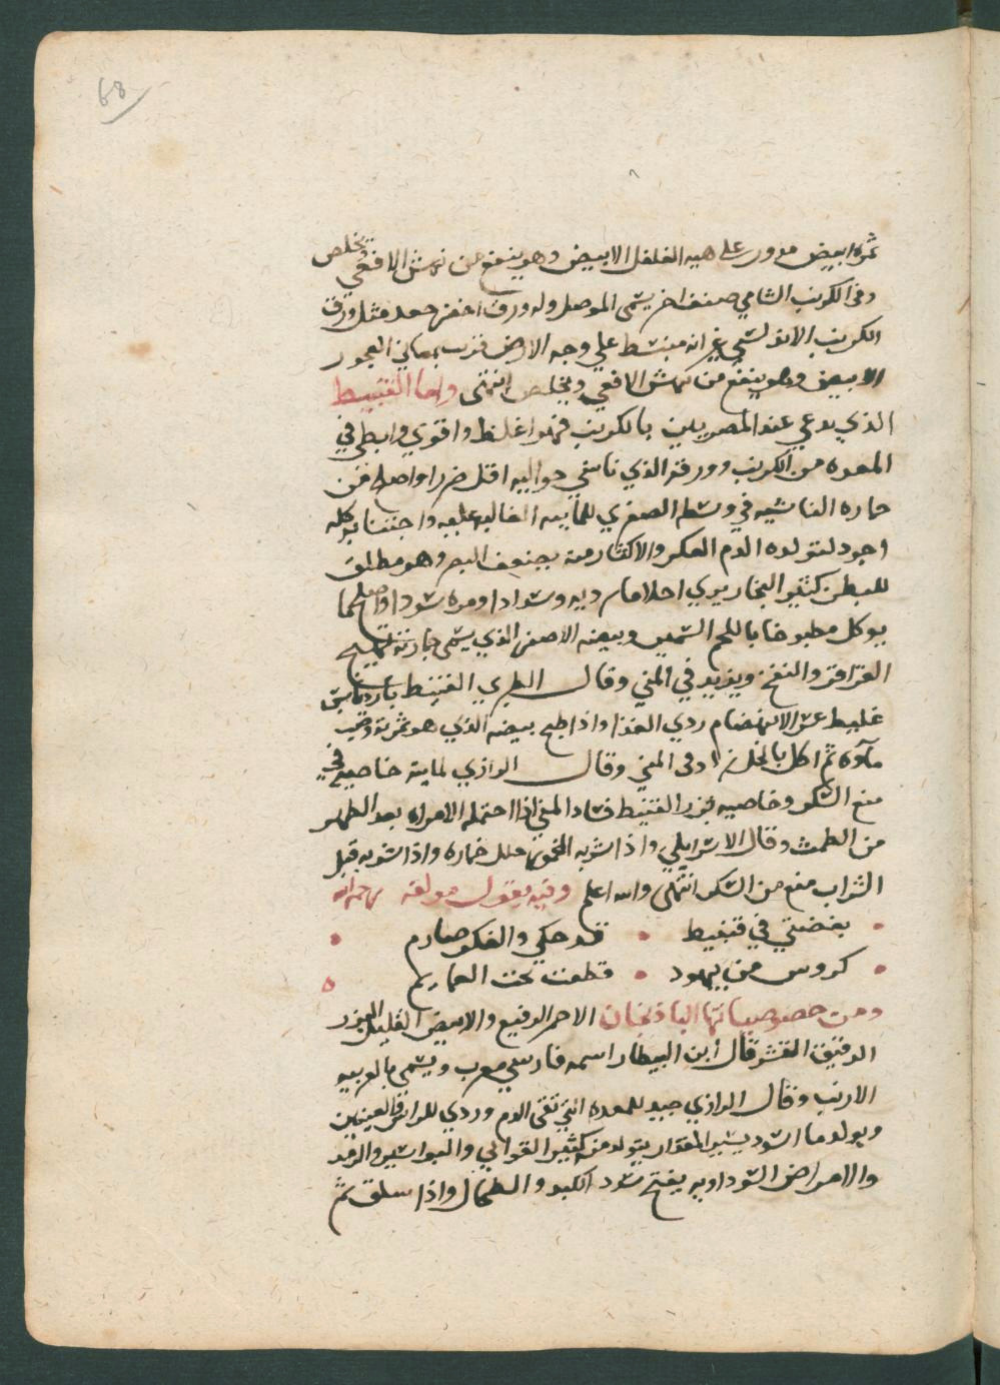 68
ثمره ابيض مدور على هيه الفلفل الابيض وهو ينفع من نهش الافعي ويخلص
وفي الكرنب الشامي صنف اخر يسمى الموصلي وله ورق اخضر جعد مثل ورق
الكرنب الاندلسي غير انه منبسط علي وجه الارض
الابيض وهو ينفع من نهش الافعي ويخلص انتهى واما القنبيط
الذي يدعي عند المصريين بالكرنب فهو اغلظ واقوي وابطى في
المعده من الكرنب وورقه الذي ناشي حواليه اقل ضررا واصلح من
جماره الناشيه في وسط الصفري للمائيه الغالبه عليه واجتناب اكله
اجود لتولده الدم العكر والاكثار منه يضعف البصر وهو مطلق
للبطن كثير البخار يري احلاما رديه وسوادا ومره سودا واصلح ما
يوكل مطبوخا باللحم السمين وبيضه الاصفر الذي يسمى جمارته يهيج
القراقر والنفخ ويزيد في المني وقال الطبري القنبيط بارد يابس
غليظ عسر الانهضام ردي الغذا واذا طبخ بيضه الذي هو ثمرته وصب
ماوه ثم اكل بالخل زاد في المني وقال الرازي لمايته خاصيه في
منع السكر وخاصيه بزر القنبيط فساد المني اذا احتمله الامراه بعد الطهر
من الطمث وقال الاسرايلي واذا شربه المخمور حلل خماره واذا شربه قبل
الشراب منع من السكر انتهى والله اعلم وفيه يقول مولفه رحمه الله
بغضتي في قنبيط قد حكي والفكر صارم
كروس من يهود قطعت تحت العمايم
ومن خصوصياتها الباذنجان الاحمر الرفيع والابيض القليل البزر
الرقيق القشر قال ابن البيطار اسمه فارسي معرب ويسمى بالعربيه
الانب وقال الرازي جيد للمعده التي تقي الدم وردي للراس والعينين
ويولد دما اسود يسير المقدار يتولد منه كثير القوابي والبواسير والرمد
والامراض السوداويه يفتح سدد الكبد والطحال واذا سلق ثم